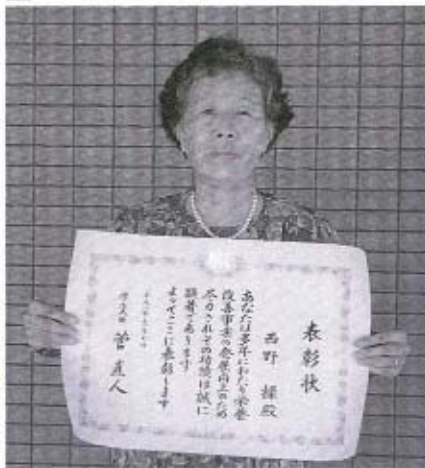 表彰状
西野 操殿
あなたは多年にわたり栄養
改善事業の発展向上のため
尽力されその功績は誠に
顕著であります
よってここに表彰します
菅 直人